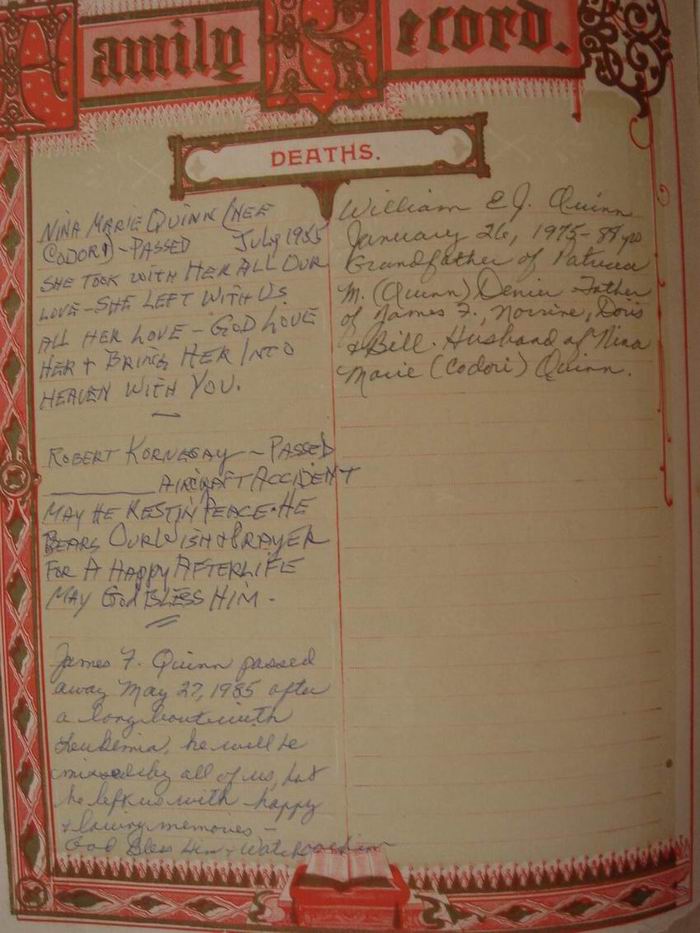 Family Record.
DEATHS.
NINA MARIE QUINN (NEE
CODORI) - PASSED July 1955
SHE TOOK WITH HER ALL OUR
LOVE - SHE LEFT WITH US
ALL HER LOVE - GOD LOVE
HER + BRING HER INTO
HEAVEN WITH YOU.
ROBERT KORNEGAY - PASSED
________ AIRCRAFT ACCIDENT
MAY HE REST IN PEACE. HE
BEARS OUR WISH & PRAYER
FOR A HAPPY AFTERLIFE
MAY GOD BLESS HIM -
James F. Quinn passed
away May 27, 1985 after
a long bout with
Leukemia, he will be
missed by all of us, but
he left us with happy
& loving memories -
God Bless Him + Watch over him
William E J. Quinn
January 26, 1975 - 89 yrs
Grandfather of Patricia
M. (Quinn) Denier Father
of James F., Norrine, Doris
& Bill. Husband of Nina
Marie (Codori) Quinn.